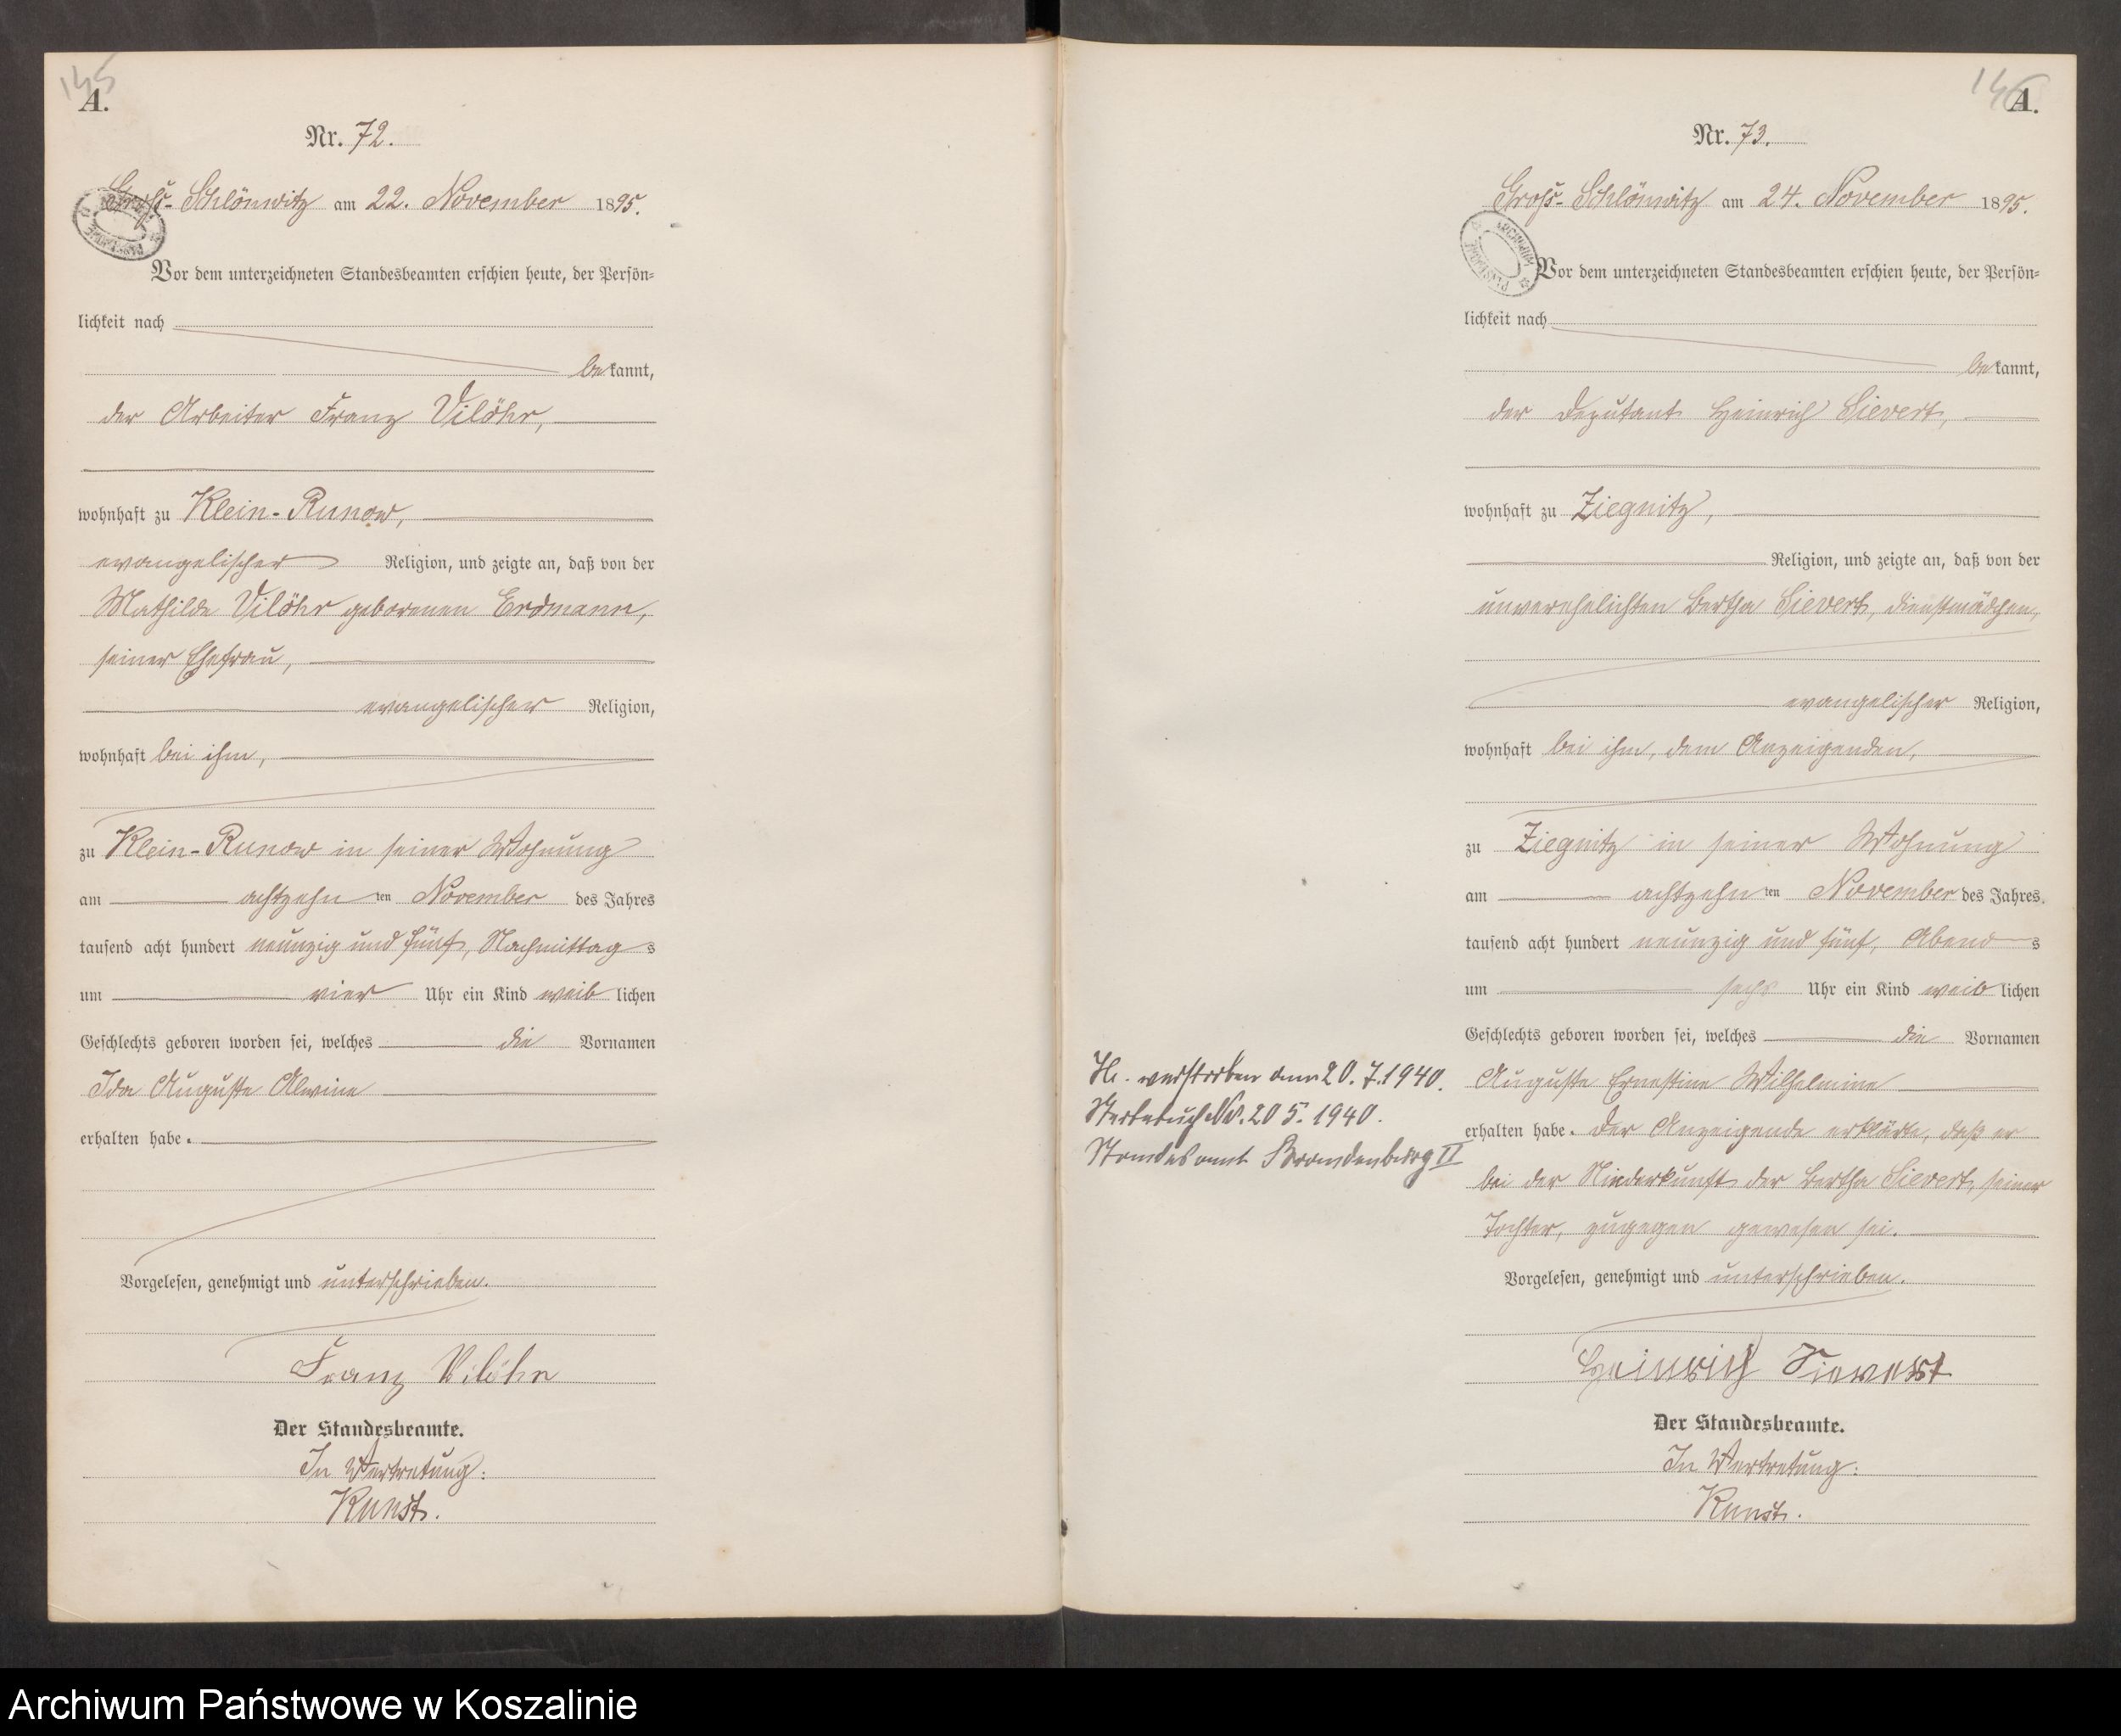 145
A.
Nr. 72.
Groß-Schlönwitz am 22. November 1895.
Vor dem unterzeichneten Standesbeamten erschien heute, der Persön=
lichkeit nach
bekannt,
der Arbeiter Franz Vilöhr,
wohnhaft zu Klein-Runow,
evangelischer Religion, und zeigte an, daß von der
Mathilde Vilöhr geborenen Erdmann,
seiner Ehefrau,
evangelischer Religion,
wohnhaft bei ihm,
zu Klein-Runow in seiner Wohnung
am achtzehn ten November des Jahres
tausend acht hundert neunzig und fünf, Nachmittags
um vier Uhr ein Kind weiblichen
Geschlechts geboren worden sei, welches die Vornamen
Ida Auguste Alwine
erhalten habe.
Vorgelesen, genehmigt und unterschrieben.
Franz Vilöhr
Der Standesbeamte.
In Vertretung:
Kunst.
146
A.
Nr. 73.
Groß-Schlönwitz am 24. November 1895.
Vor dem unterzeichneten Standesbeamten erschien heute, der Persön=
lichkeit nach
bekannt,
der Deputant Heinrich Sievert,
wohnhaft zu Ziegnitz,
Religion, und zeigte an, daß von der
unverehelichten Bertha Sievert, Dienstmädchen,
evangelischer Religion,
wohnhaft bei ihm, dem Anzeigenden,
zu Ziegnitz in seiner Wohnung
am achtzehn ten November des Jahres
tausend acht hundert neunzig und fünf, Abends
um sechs Uhr ein Kind weiblichen
Geschlechts geboren worden sei, welches die Vornamen
Auguste Ernestine Wilhelmine
erhalten habe. Der Anzeigende erklärte, daß er
bei der Niederkunft der Bertha Sievert, seiner
Tochter, zugegen gewesen sei.
Vorgelesen, genehmigt und unterschrieben.
Heinrich Siewert
Der Standesbeamte.
In Vertretung:
Kunst.
verstorben am 20.7.1940.
Sterbebuch Nr. 205. 1940.
Standesamt Brandenburg II
Archiwum Państwowe w Koszalinie